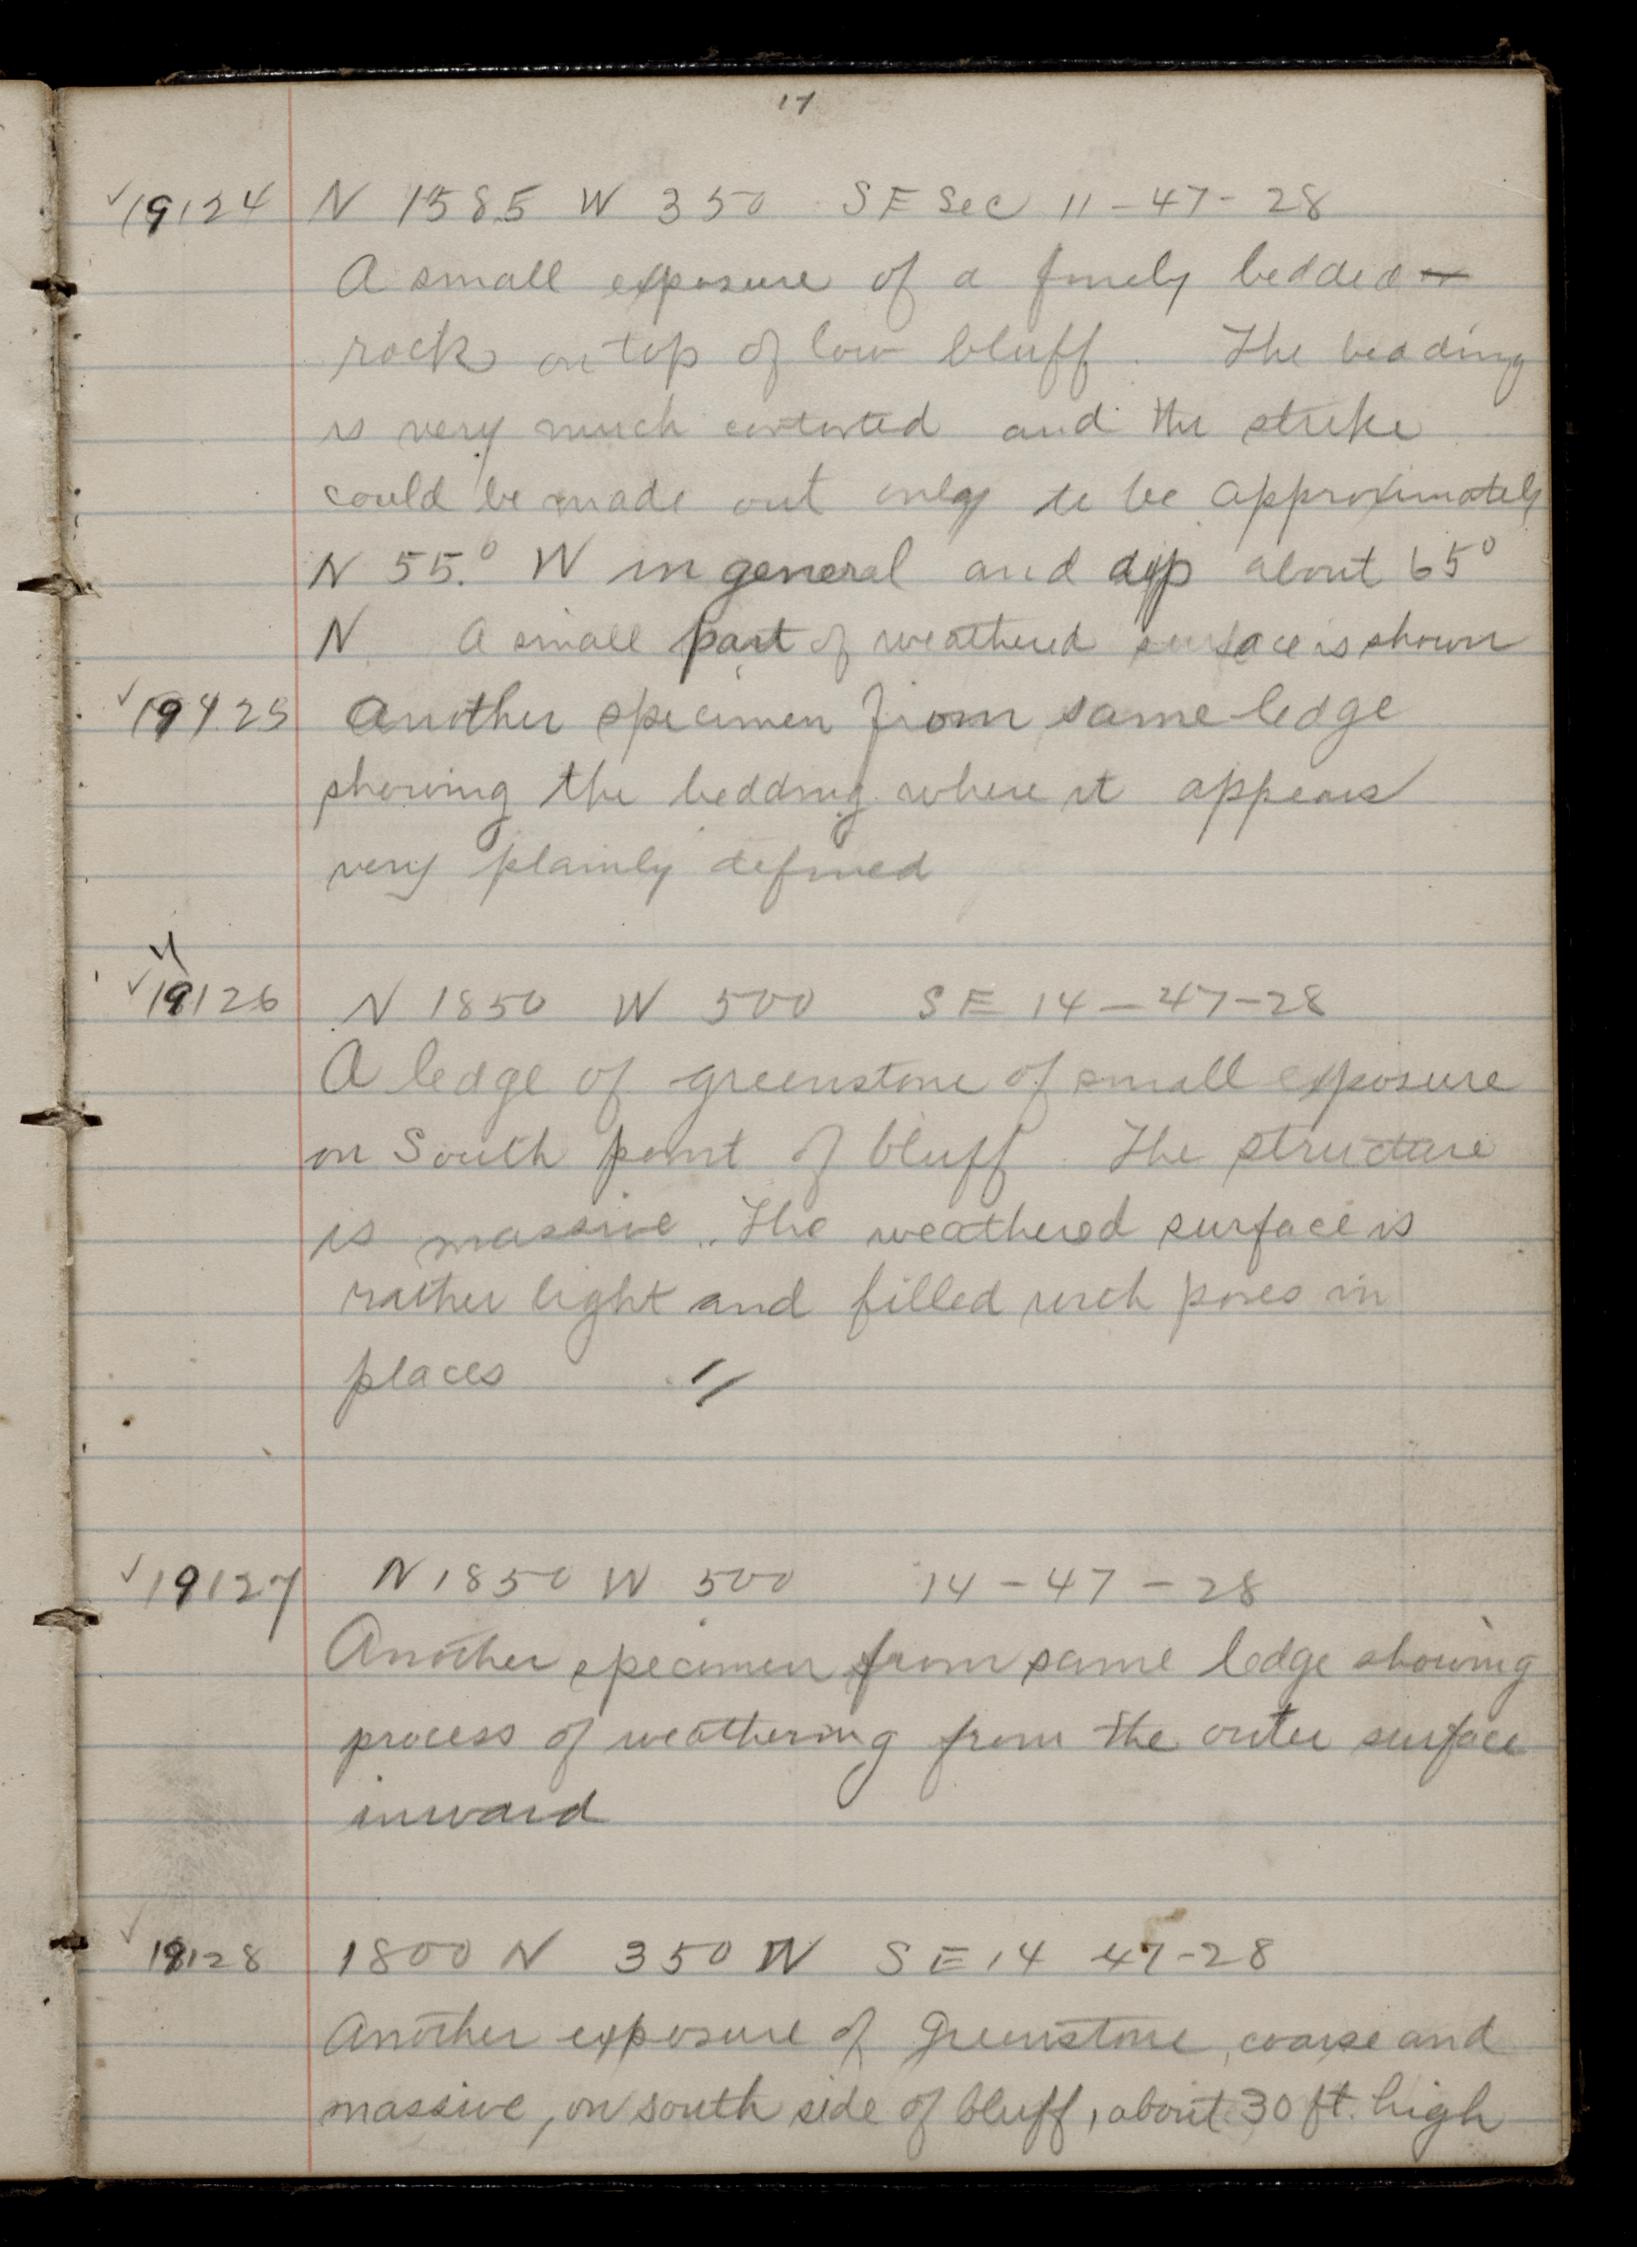 17
19124 N 1585 W 350 SE Sec 11-47-28
A small exposure of a finely bedded
rock on top of low bluff. The bedding
is very much contorted and the strike
could be made out only to be approximately
N 55° W in general and dip about 65°
N. A small part of weathered surface is shown
19125 Another specimen from same ledge
showing the bedding where it appears
very plainly defined
19126 N 1850 W 500 SE 14-47-28
A ledge of greenstone of small exposure
on South point of bluff. The structure
is massive. The weathered surface is
rather light and filled with pores in
places
19127 N 1850 W 500 14-47-28
Another specimen from same ledge showing
process of weathering from the outer surface
inward
19128 1800 N 350 W SE 14 47-28
Another exposure of greenstone, coarse and
massive, on south side of bluff, about 30 ft. high